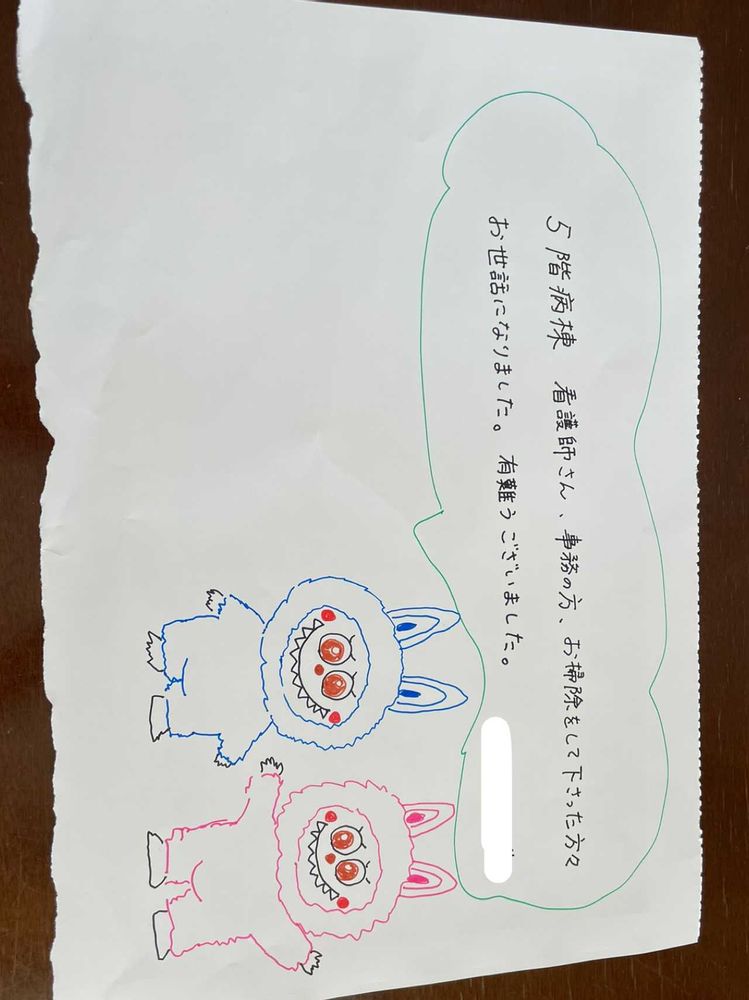 5階病棟 看護師さん、事務の方、お掃除をして下さった方々
お世話になりました。有難うございました。